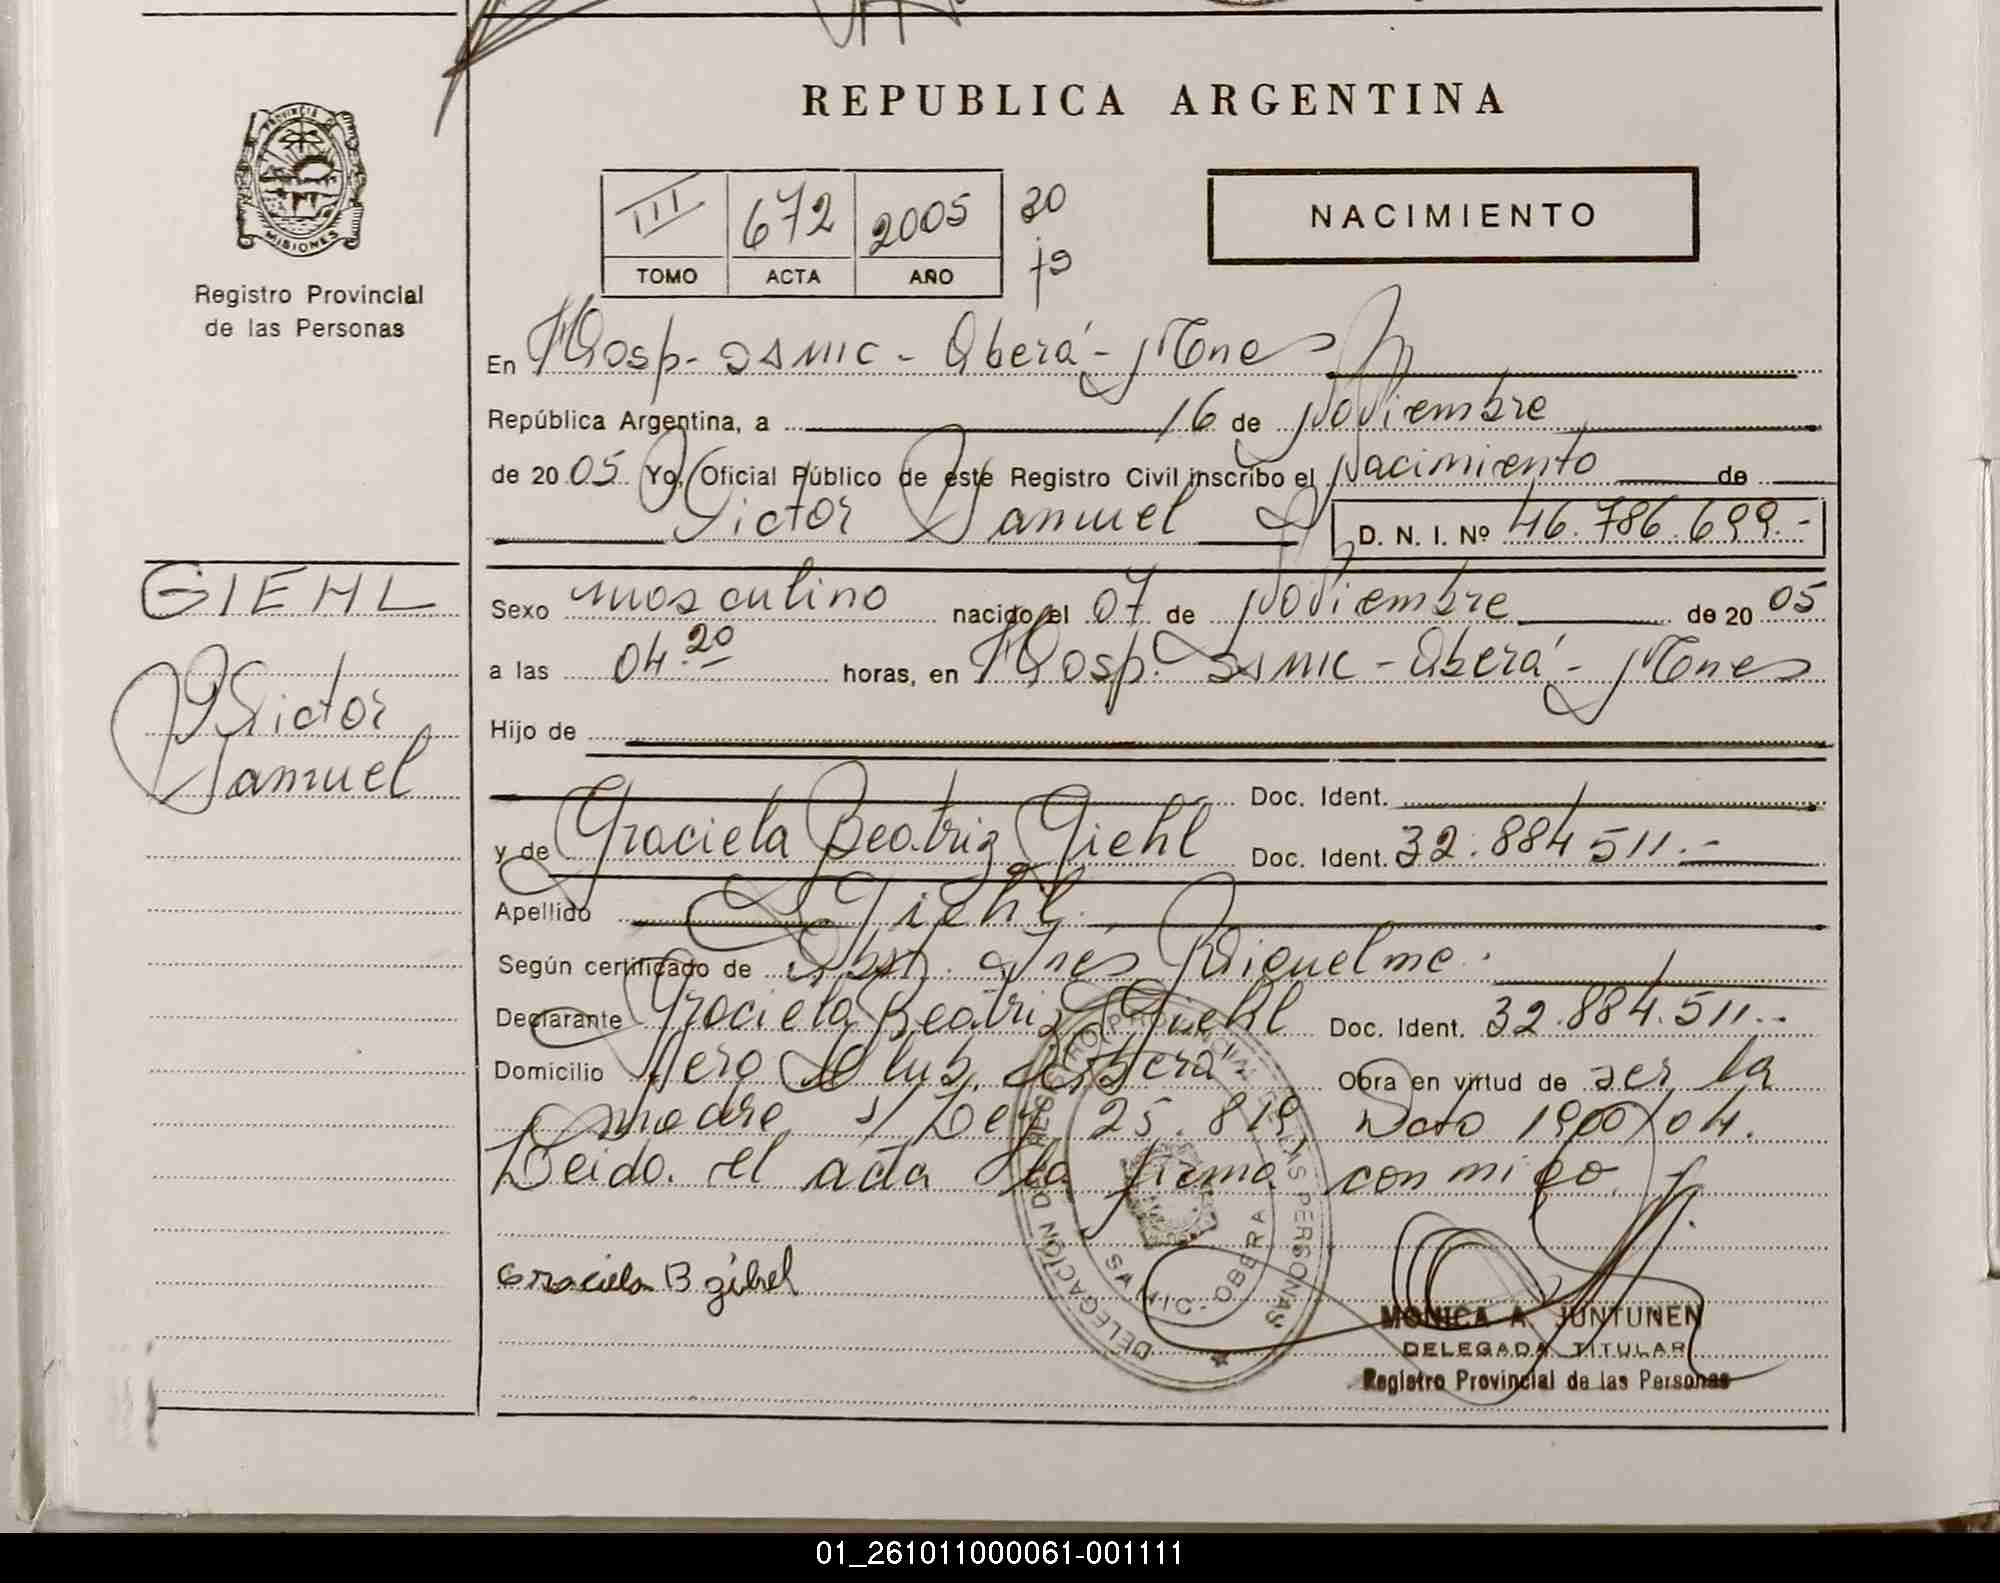 REPUBLICA ARGENTINA
PROVINCIA DE
MISIONES
Registro Provincial
de las Personas
III 672 2005 30
TOMO ACTA AÑO
NACIMIENTO
En Hosp- SAMIC - Oberá - Mnes
República Argentina, a 16 de Noviembre
de 2005 Yo, Oficial Público de este Registro Civil inscribo el Nacimiento de
Victor Samuel D. N. I. Nº 46.786.699.-
GIEHL
Victor
Samuel
Sexo masculino nacido el 07 de Noviembre de 2005
a las 04.20 horas, en Hosp. SAMIC - Oberá - Mnes
Hijo de
Doc. Ident.
y de Graciela Beatriz Giehl Doc. Ident. 32.884.511.-
Apellido Giehl
Según certificado de Obst. Inés Riquelme.
Declarante Graciela Beatriz Giehl Doc. Ident. 32.884.511.-
Domicilio Aero Club, Oberá Obra en virtud de ser la
madre s/ Ley 25.819, Dcto 1900/04.
Leido el acta la firma conmigo.
Graciela B giehl
DELEGACIÓN DE REGISTRO PROVINCIAL DE LAS PERSONAS
SAMIC - OBERA
MONICA A. JUNTUNEN
DELEGADA TITULAR
Registro Provincial de las Personas
01_261011000061-001111